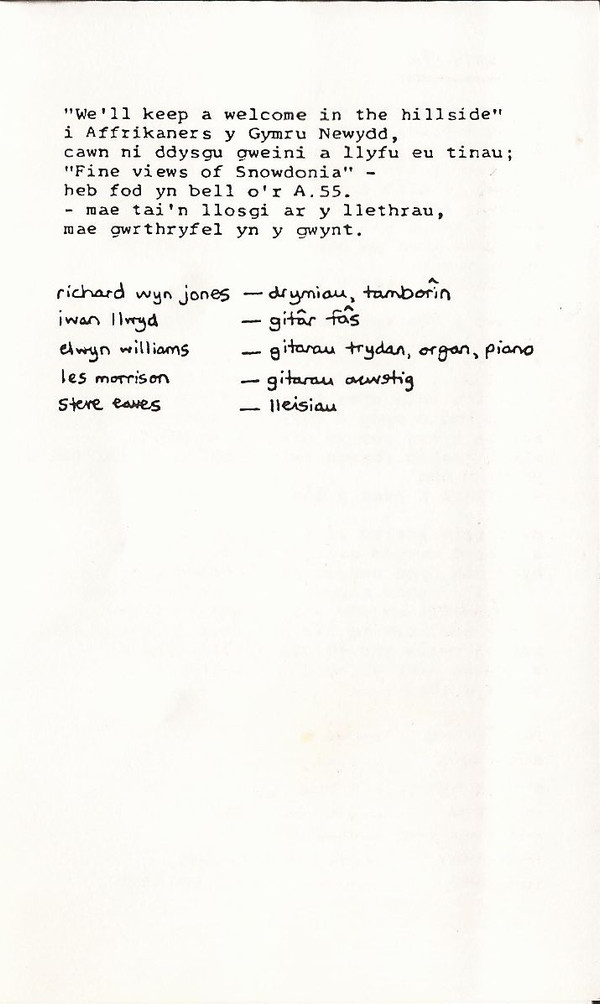 "We'll keep a welcome in the hillside"
i Affrikaners y Gymru Newydd,
cawn ni ddysgu gweini a llyfu eu tinau;
"Fine views of Snowdonia" -
heb fod yn bell o'r A.55.
- mae tai'n llosgi ar y llethrau,
mae gwrthryfel yn y gwynt.
richard wyn jones — drymiau, tamborîn
iwan llwyd — gitâr fâs
elwyn williams — gitarau trydan, organ, piano
les morrison — gitarau acwstig
steve eaves — lleisiau